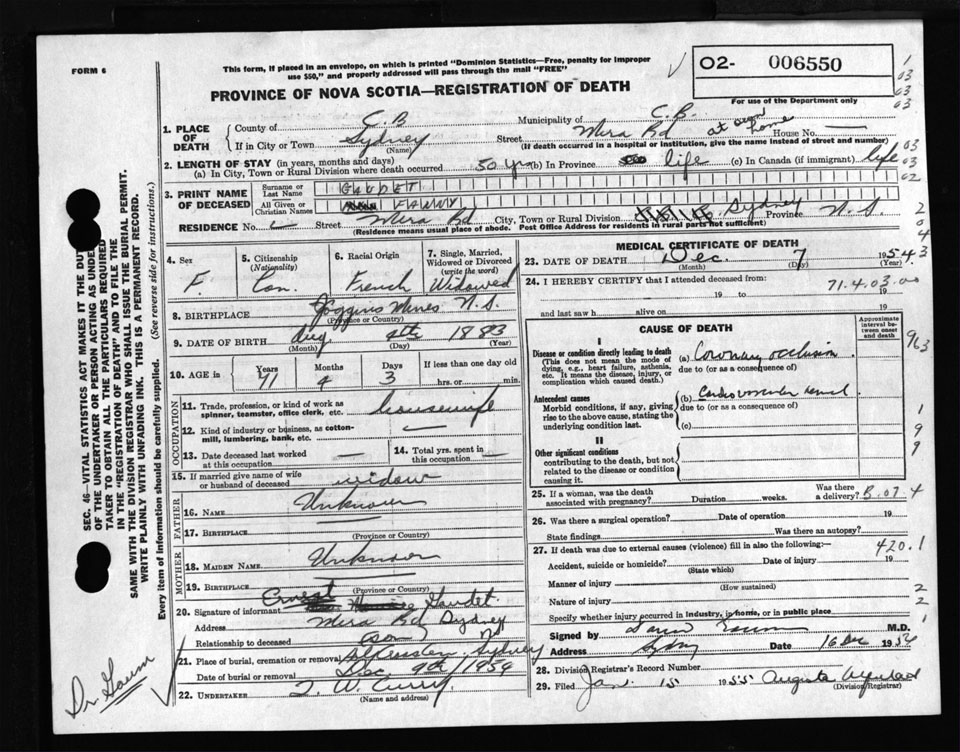 FORM 6
This form, if placed in an envelope, on which is printed "Dominion Statistics—Free, penalty for improper
use $50," and properly addressed will pass through the mail "FREE"
O2- 006550
For use of the Department only
PROVINCE OF NOVA SCOTIA—REGISTRATION OF DEATH
1. PLACE OF DEATH
County of C.B
Municipality of C.B.
If in City or Town Sydney
(Name)
Street Mira Rd at own home House No. —
(If death occurred in a hospital or institution, give the name instead of street and number)
2. LENGTH OF STAY (in years, months and days)
(a) In City, Town or Rural Division where death occurred 50 yrs (b) In Province life (c) In Canada (if immigrant) life
3. PRINT NAME OF DECEASED
Surname or Last Name GAUDET
All Given or Christian Names FANNY
RESIDENCE No. Street Mira Rd City, Town or Rural Division Sydney Province N.S.
(Residence means usual place of abode. Post Office Address for residents in rural parts not sufficient)
4. Sex
F.
5. Citizenship
(Nationality)
Can.
6. Racial Origin
French
7. Single, Married,
Widowed or Divorced
(write the word)
Widowed
8. BIRTHPLACE Joggins Mines N.S.
(Province or Country)
9. DATE OF BIRTH Aug. 4th 1883
(Month) (Day) (Year)
10. AGE in
Years 71
Months 4
Days 3
If less than one day old
hrs. or min.
OCCUPATION
11. Trade, profession, or kind of work as
spinner, teamster, office clerk, etc. housewife
12. Kind of industry or business, as cotton-
mill, lumbering, bank, etc. —
13. Date deceased last worked
at this occupation —
14. Total yrs. spent in
this occupation —
15. If married give name of wife
or husband of deceased widow
FATHER
16. NAME Unknown
17. BIRTHPLACE —
(Province or Country)
MOTHER
18. MAIDEN NAME Unknown
19. BIRTHPLACE —
(Province or Country)
20. Signature of informant Ernest Gaudet
Address Mira Rd Sydney
Relationship to deceased (son)
21. Place of burial, cremation or removal Sydney
Date of burial or removal Dec 9th/1954
22. UNDERTAKER T. W. Curry.
(Name and address)
MEDICAL CERTIFICATE OF DEATH
23. DATE OF DEATH Dec. 7 1954
(Month) (Day) (Year)
24. I HEREBY CERTIFY that I attended deceased from:
71.4.03.00
19 to 19
and last saw h alive on 19
CAUSE OF DEATH
Approximate
interval be-
tween onset
and death
I
Disease or condition directly leading to death
(This does not mean the mode of
dying, e.g., heart failure, asthenia,
etc. It means the disease, injury, or
complication which caused death.)
(a) Coronary occlusion
due to (or as a consequence of)
Antecedent causes
Morbid conditions, if any, giving
rise to the above cause, stating the
underlying condition last.
(b) Cardiovascular renal
due to (or as a consequence of)
(c)
II
Other significant conditions
contributing to the death, but not
related to the disease or condition
causing it.
25. If a woman, was the death
associated with pregnancy? Duration weeks. Was there
a delivery? B.07 4
26. Was there a surgical operation? Date of operation 19
State findings Was there an autopsy?
27. If death was due to external causes (violence) fill in also the following:— 420.1
Accident, suicide or homicide? Date of injury 19
(State which)
Manner of injury
(How sustained)
Nature of injury
Specify whether injury occurred in industry, in home, or in public place
Signed by M.D.
Address Sydney Date 16 Dec 1954
28. Division Registrar's Record Number
29. Filed Jan. 15 1955 Augusta
(Division Registrar)
SEC. 46—VITAL STATISTICS ACT MAKES IT THE DUTY
OF THE UNDERTAKER OR PERSON ACTING AS UNDER-
TAKER TO OBTAIN ALL THE PARTICULARS REQUIRED
IN THE "REGISTRATION OF DEATH" AND TO FILE THE
SAME WITH THE DIVISION REGISTRAR WHO SHALL ISSUE THE BURIAL PERMIT.
WRITE PLAINLY WITH UNFADING INK. THIS IS A PERMANENT RECORD.
Every item of information should be carefully supplied. (See reverse side for instructions.)
Dr. Gaum
1
03
03
03
03
03
02
963
1
9
9
2
2